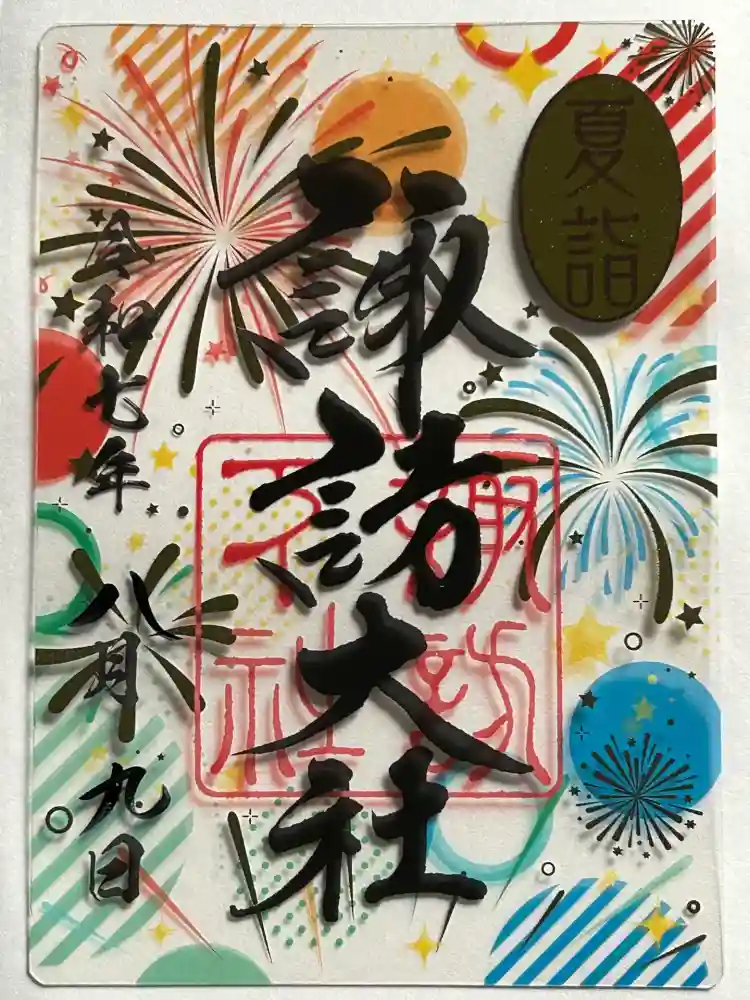 夏詣
諏訪大社
令和七年 八月九日